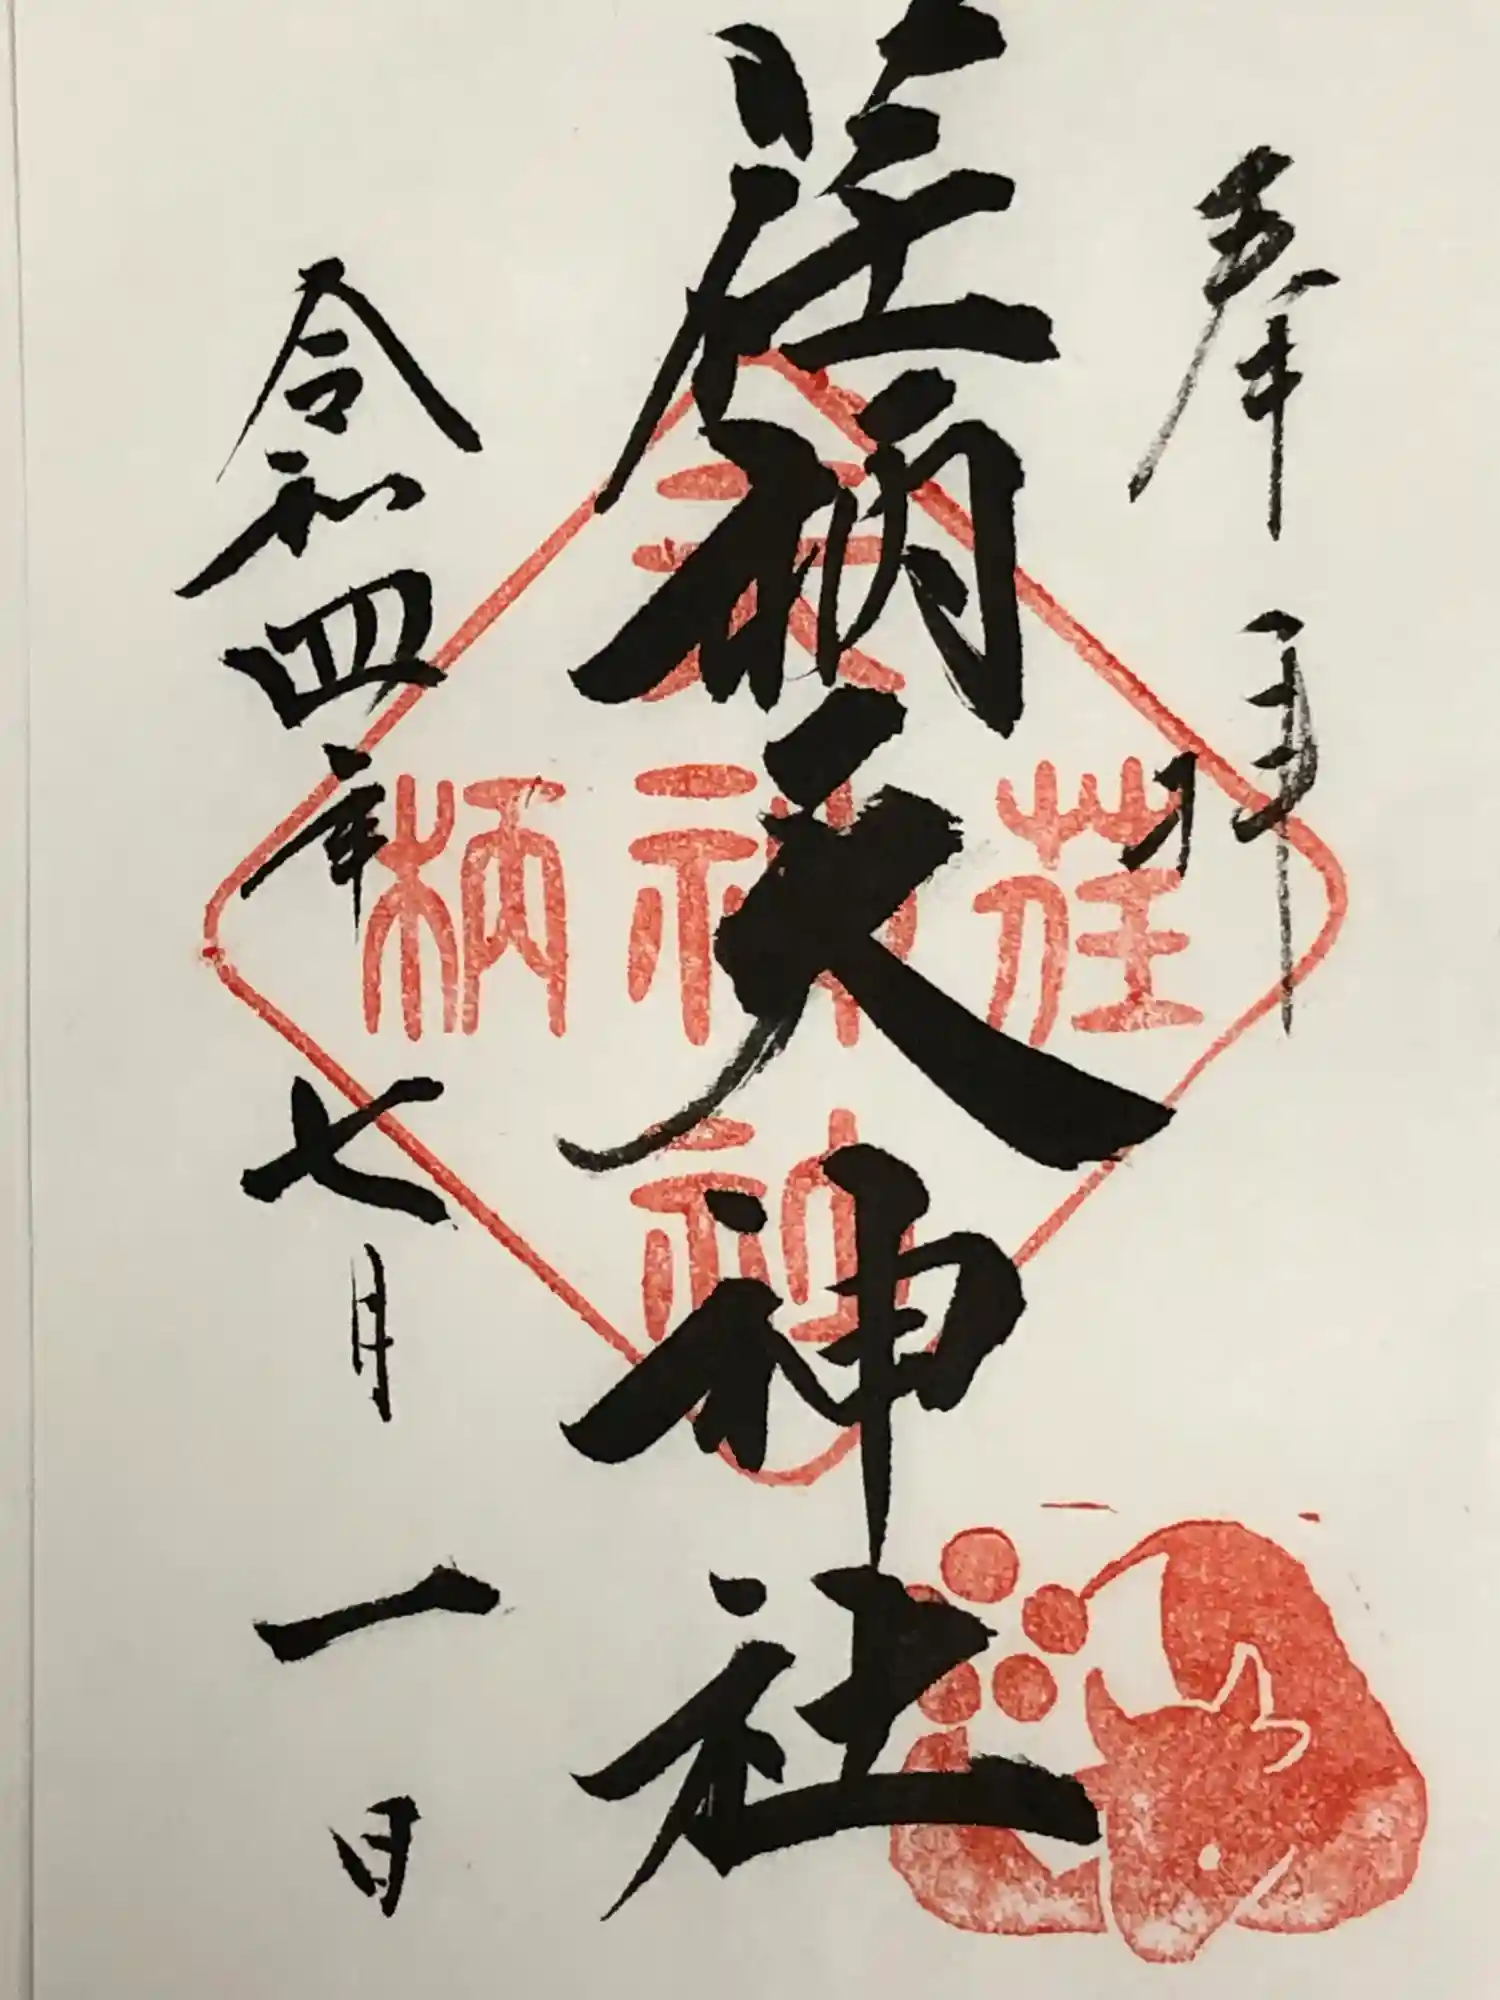 奉拝
荏柄天神社
令和四年七月一日
天
荏神柄
神